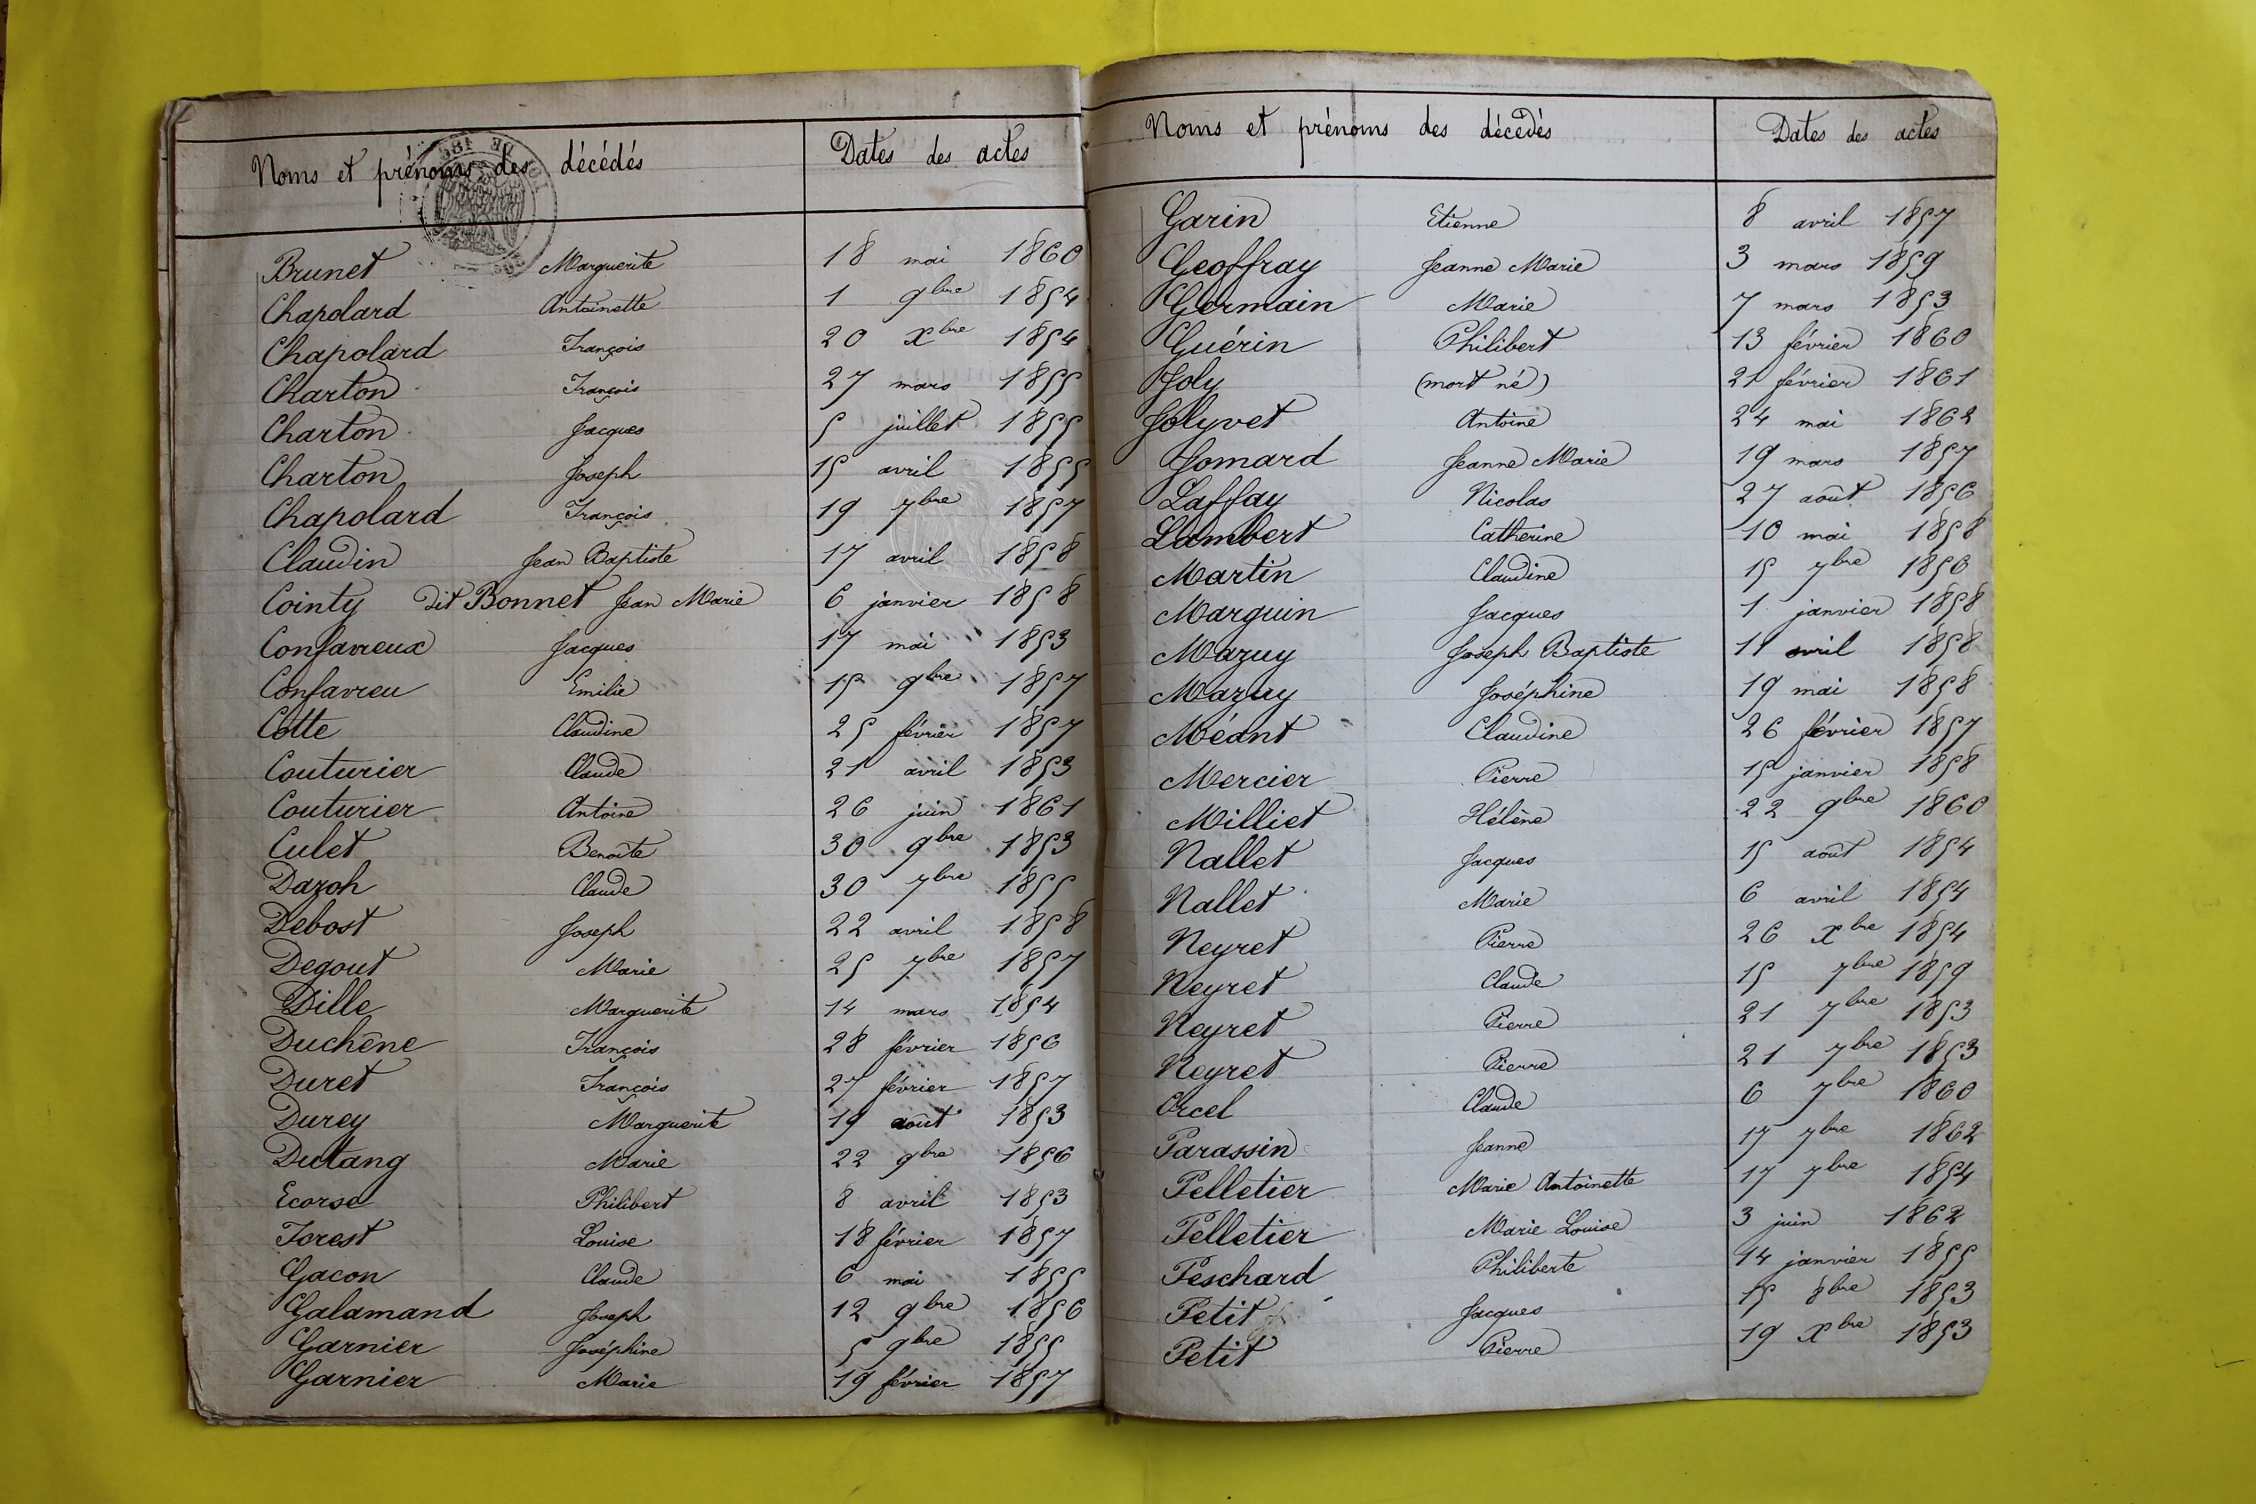 Noms et prénoms des décédés Dates des actes
Brunet Marguerite 18 mai 1860
Chapolard Antoinette 1 9bre 1854
Chapolard François 20 Xbre 1854
Charton François 27 mars 1855
Charton Jacques 5 juillet 1855
Charton Joseph 15 avril 1855
Chapolard François 19 7bre 1857
Claudin Jean Baptiste 17 avril 1858
Cointy dit Bonnet Jean Marie 6 janvier 1858
Confavreux Jacques 17 mai 1853
Confavreu Emilie 15 9bre 1857
Cotte Claudine 25 février 1857
Couturier Claude 21 avril 1853
Couturier Antoine 26 juin 1861
Culet Benoîte 30 9bre 1853
Dazoh Claude 30 7bre 1855
Debost Joseph 22 avril 1858
Degout Marie 25 7bre 1857
Dille Marguerite 14 mars 1854
Duchêne François 28 février 1856
Duret François 27 février 1857
Durey Marguerite 19 août 1853
Dutang Marie 22 9bre 1856
Ecorse Philibert 8 avril 1853
Forest Louise 18 février 1857
Gacon Claude 6 mai 1855
Galamand Joseph 12 9bre 1856
Garnier Joséphine 5 9bre 1855
Garnier Marie 19 février 1857
Noms et prénoms des décédés Dates des actes
Garin Etienne 8 avril 1857
Geoffray Jeanne Marie 3 mars 1859
Germain Marie 7 mars 1853
Guérin Philibert 13 février 1860
Joly (mort né) 21 février 1861
Jolyvet Antoine 24 mai 1862
Jomard Jeanne Marie 19 mars 1857
Laffay Nicolas 27 août 1856
Lambert Catherine 10 mai 1858
Martin Claudine 15 7bre 1856
Marguin Jacques 1 janvier 1858
Mazuy Joseph Baptiste 11 avril 1858
Mazuy Joséphine 19 mai 1858
Méant Claudine 26 février 1857
Mercier Pierre 15 janvier 1858
Milliet Hélène 22 9bre 1860
Nallet Jacques 15 août 1854
Nallet Marie 6 avril 1854
Neyret Pierre 26 Xbre 1854
Neyret Claude 15 7bre 1859
Neyret Pierre 21 7bre 1853
Neyret Pierre 21 7bre 1853
Orcel Claude 6 7bre 1860
Parassin Jeanne 17 7bre 1862
Pelletier Marie Antoinette 17 7bre 1854
Pelletier Marie Louise 3 juin 1862
Peschard Philiberte 14 janvier 1855
Petit Jacques 15 8bre 1853
Petit Pierre 19 Xbre 1853